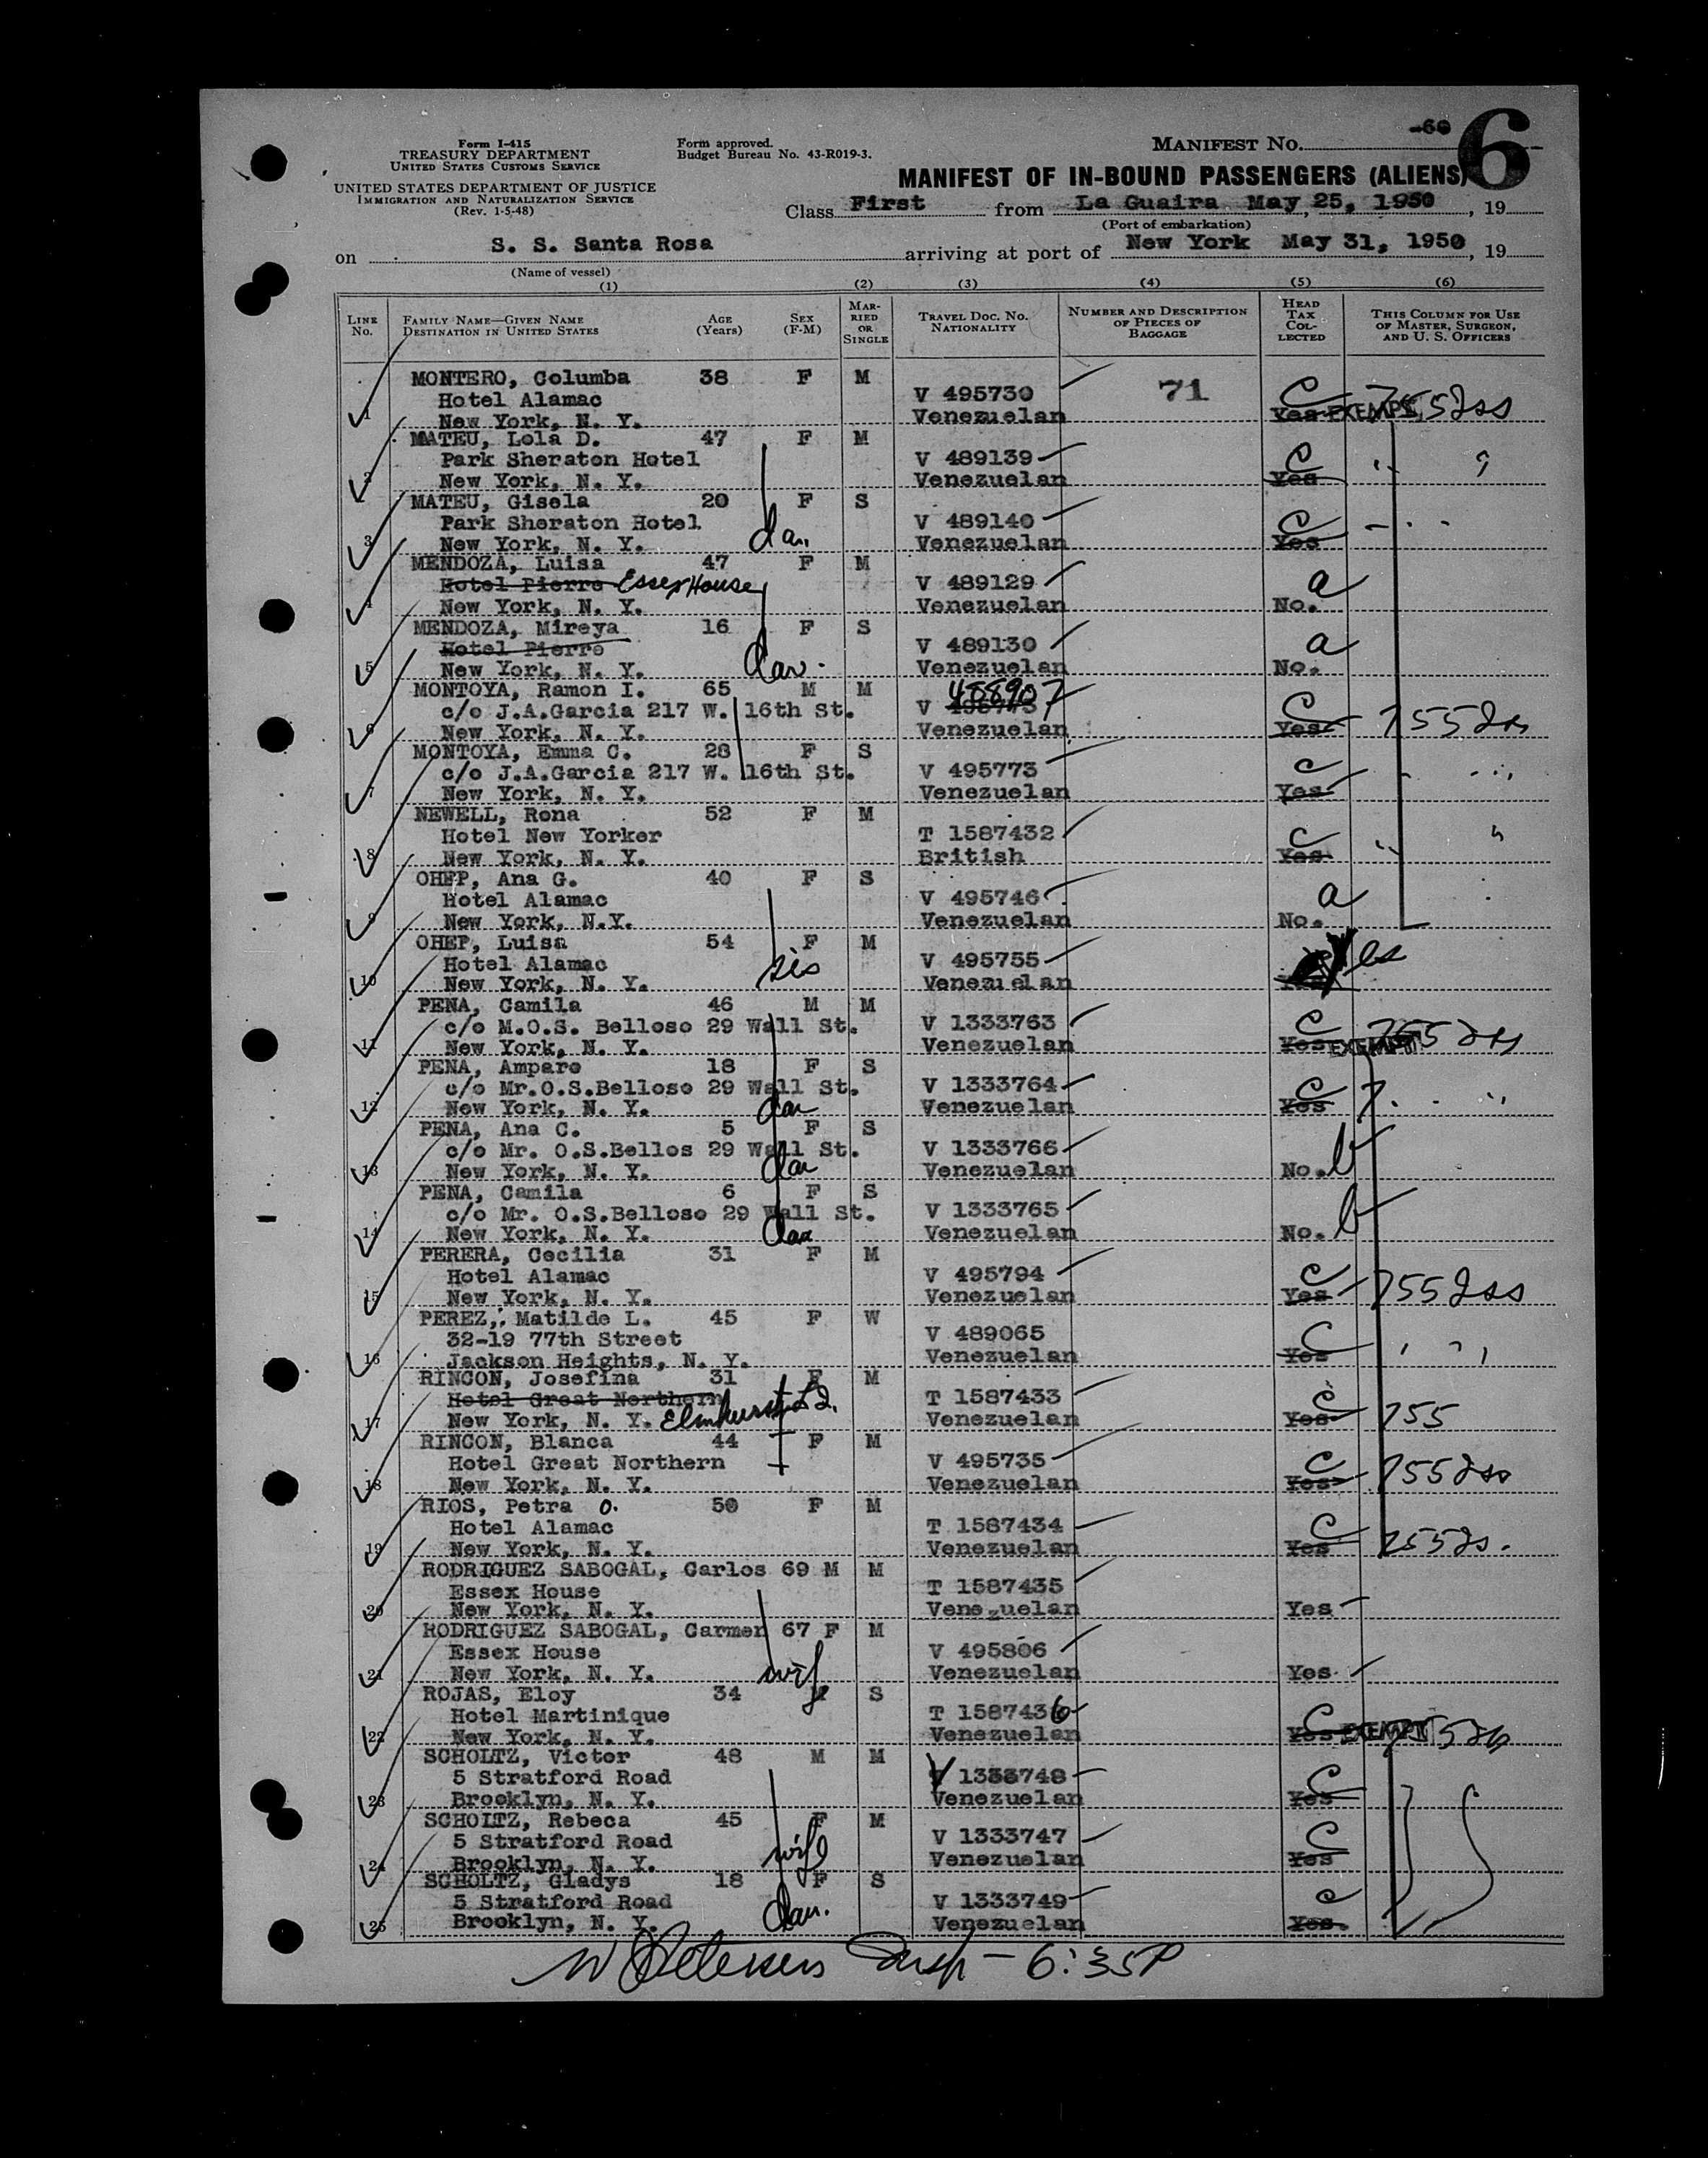 Form I-415
TREASURY DEPARTMENT
UNITED STATES CUSTOMS SERVICE
UNITED STATES DEPARTMENT OF JUSTICE
IMMIGRATION AND NATURALIZATION SERVICE
(Rev. 1-5-48)
Form approved.
Budget Bureau No. 43-R019-3.
MANIFEST No. -60
6
MANIFEST OF IN-BOUND PASSENGERS (ALIENS)
Class First from La Guaira May 25, 1950, 19
(Port of embarkation)
on S. S. Santa Rosa arriving at port of New York May 31, 1950, 19
(Name of vessel)
(1) (2) (3) (4) (5) (6)
LINE No.
FAMILY NAME—GIVEN NAME
DESTINATION IN UNITED STATES
AGE (Years)
SEX (F-M)
MARRIED OR SINGLE
TRAVEL DOC. No. NATIONALITY
NUMBER AND DESCRIPTION OF PIECES OF BAGGAGE
HEAD TAX COLLECTED
THIS COLUMN FOR USE OF MASTER, SURGEON, AND U. S. OFFICERS
MONTERO, Columba 38 F M
Hotel Alamac V 495730 71 C
1 New York, N. Y. Venezuelan Yes EXEMPT
MATEU, Lola D. 47 F M
Park Sheraton Hotel V 489139 C
2 New York, N. Y. Venezuelan Yes
MATEU, Gisela 20 F S
Park Sheraton Hotel V 489140 C
3 New York, N. Y. dau. Venezuelan Yes
MENDOZA, Luisa 47 F M
Hotel Pierre Essex House V 489129 a
4 New York, N. Y. Venezuelan No.
MENDOZA, Mireya 16 F S
Hotel Pierre V 489130 a
5 New York, N. Y. dau. Venezuelan No.
MONTOYA, Ramon I. 65 M M 488907
c/o J.A.Garcia 217 W. 16th St. V C
6 New York, N. Y. Venezuelan Yes
MONTOYA, Emma C. 28 F S
c/o J.A.Garcia 217 W. 16th St. V 495773 C
7 New York, N. Y. Venezuelan Yes
NEWELL, Rona 52 F M
Hotel New Yorker T 1587432 C
8 New York, N. Y. British Yes
OHEP, Ana G. 40 F S
Hotel Alamac V 495746 a
9 New York, N.Y. Venezuelan No.
OHEP, Luisa 54 F M
Hotel Alamac sis V 495755 Yes
10 New York, N. Y. Venezuelan
PENA, Camila 46 M M
c/o M.O.S. Belloso 29 Wall St. V 1333763 C
11 New York, N. Y. Venezuelan Yes EXEMPT
PENA, Amparo 18 F S
c/o Mr.O.S.Belloso 29 Wall St. V 1333764 C
12 New York, N. Y. dau Venezuelan Yes
PENA, Ana C. 5 F S
c/o Mr. O.S.Bellos 29 Wall St. V 1333766
13 New York, N. Y. dau Venezuelan No. b
PENA, Camila 6 F S
c/o Mr. O.S.Belloso 29 Wall St. V 1333765
14 New York, N. Y. dau Venezuelan No. b
PERERA, Cecilia 31 F M
Hotel Alamac V 495794 C
15 New York, N. Y. Venezuelan Yes
PEREZ, Matilde L. 45 F W
32-19 77th Street V 489065 C
16 Jackson Heights, N. Y. Venezuelan Yes
RINCON, Josefina 31 F M
Hotel Great Northern T 1587433 C
17 New York, N. Y. Elmhurst L I. Venezuelan Yes 755
RINCON, Blanca 44 F M
Hotel Great Northern V 495735 C
18 New York, N. Y. Venezuelan Yes
RIOS, Petra O. 50 F M
Hotel Alamac T 1587434 C
19 New York, N. Y. Venezuelan Yes
RODRIGUEZ SABOGAL, Carlos 69 M M
Essex House T 1587435
20 New York, N. Y. Venezuelan Yes
RODRIGUEZ SABOGAL, Carmen 67 F M
Essex House V 495806
21 New York, N. Y. wife Venezuelan Yes
ROJAS, Eloy 34 M S
Hotel Martinique T 1587436 C
22 New York, N. Y. Venezuelan Yes EXEMPT
SCHOLTZ, Victor 48 M M
5 Stratford Road V 1333748 C
23 Brooklyn, N. Y. Venezuelan Yes
SCHOLTZ, Rebeca 45 F M
5 Stratford Road wife V 1333747 C
24 Brooklyn, N. Y. Venezuelan Yes
SCHOLTZ, Gladys 18 F S
5 Stratford Road V 1333749 C
25 Brooklyn, N. Y. dau. Venezuelan Yes.
Insp - 6:35P